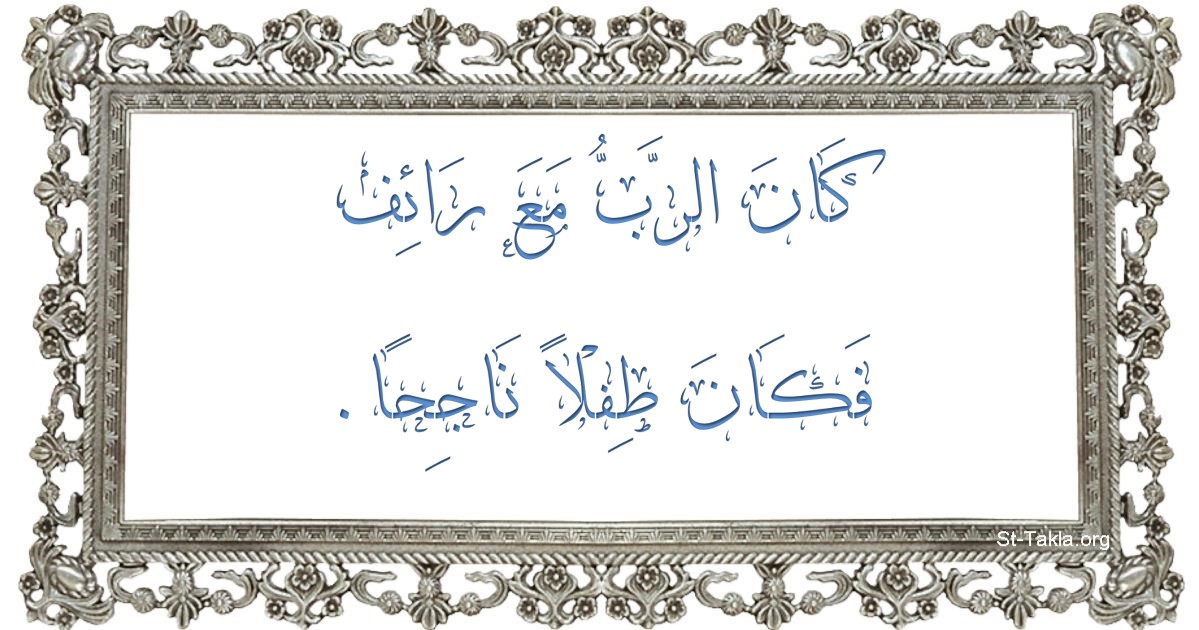 كَانَ الرَّبُّ مَعَ رَائِفْ
فَكَانَ طِفْلاً نَاجِحًا .
St-Takla.org